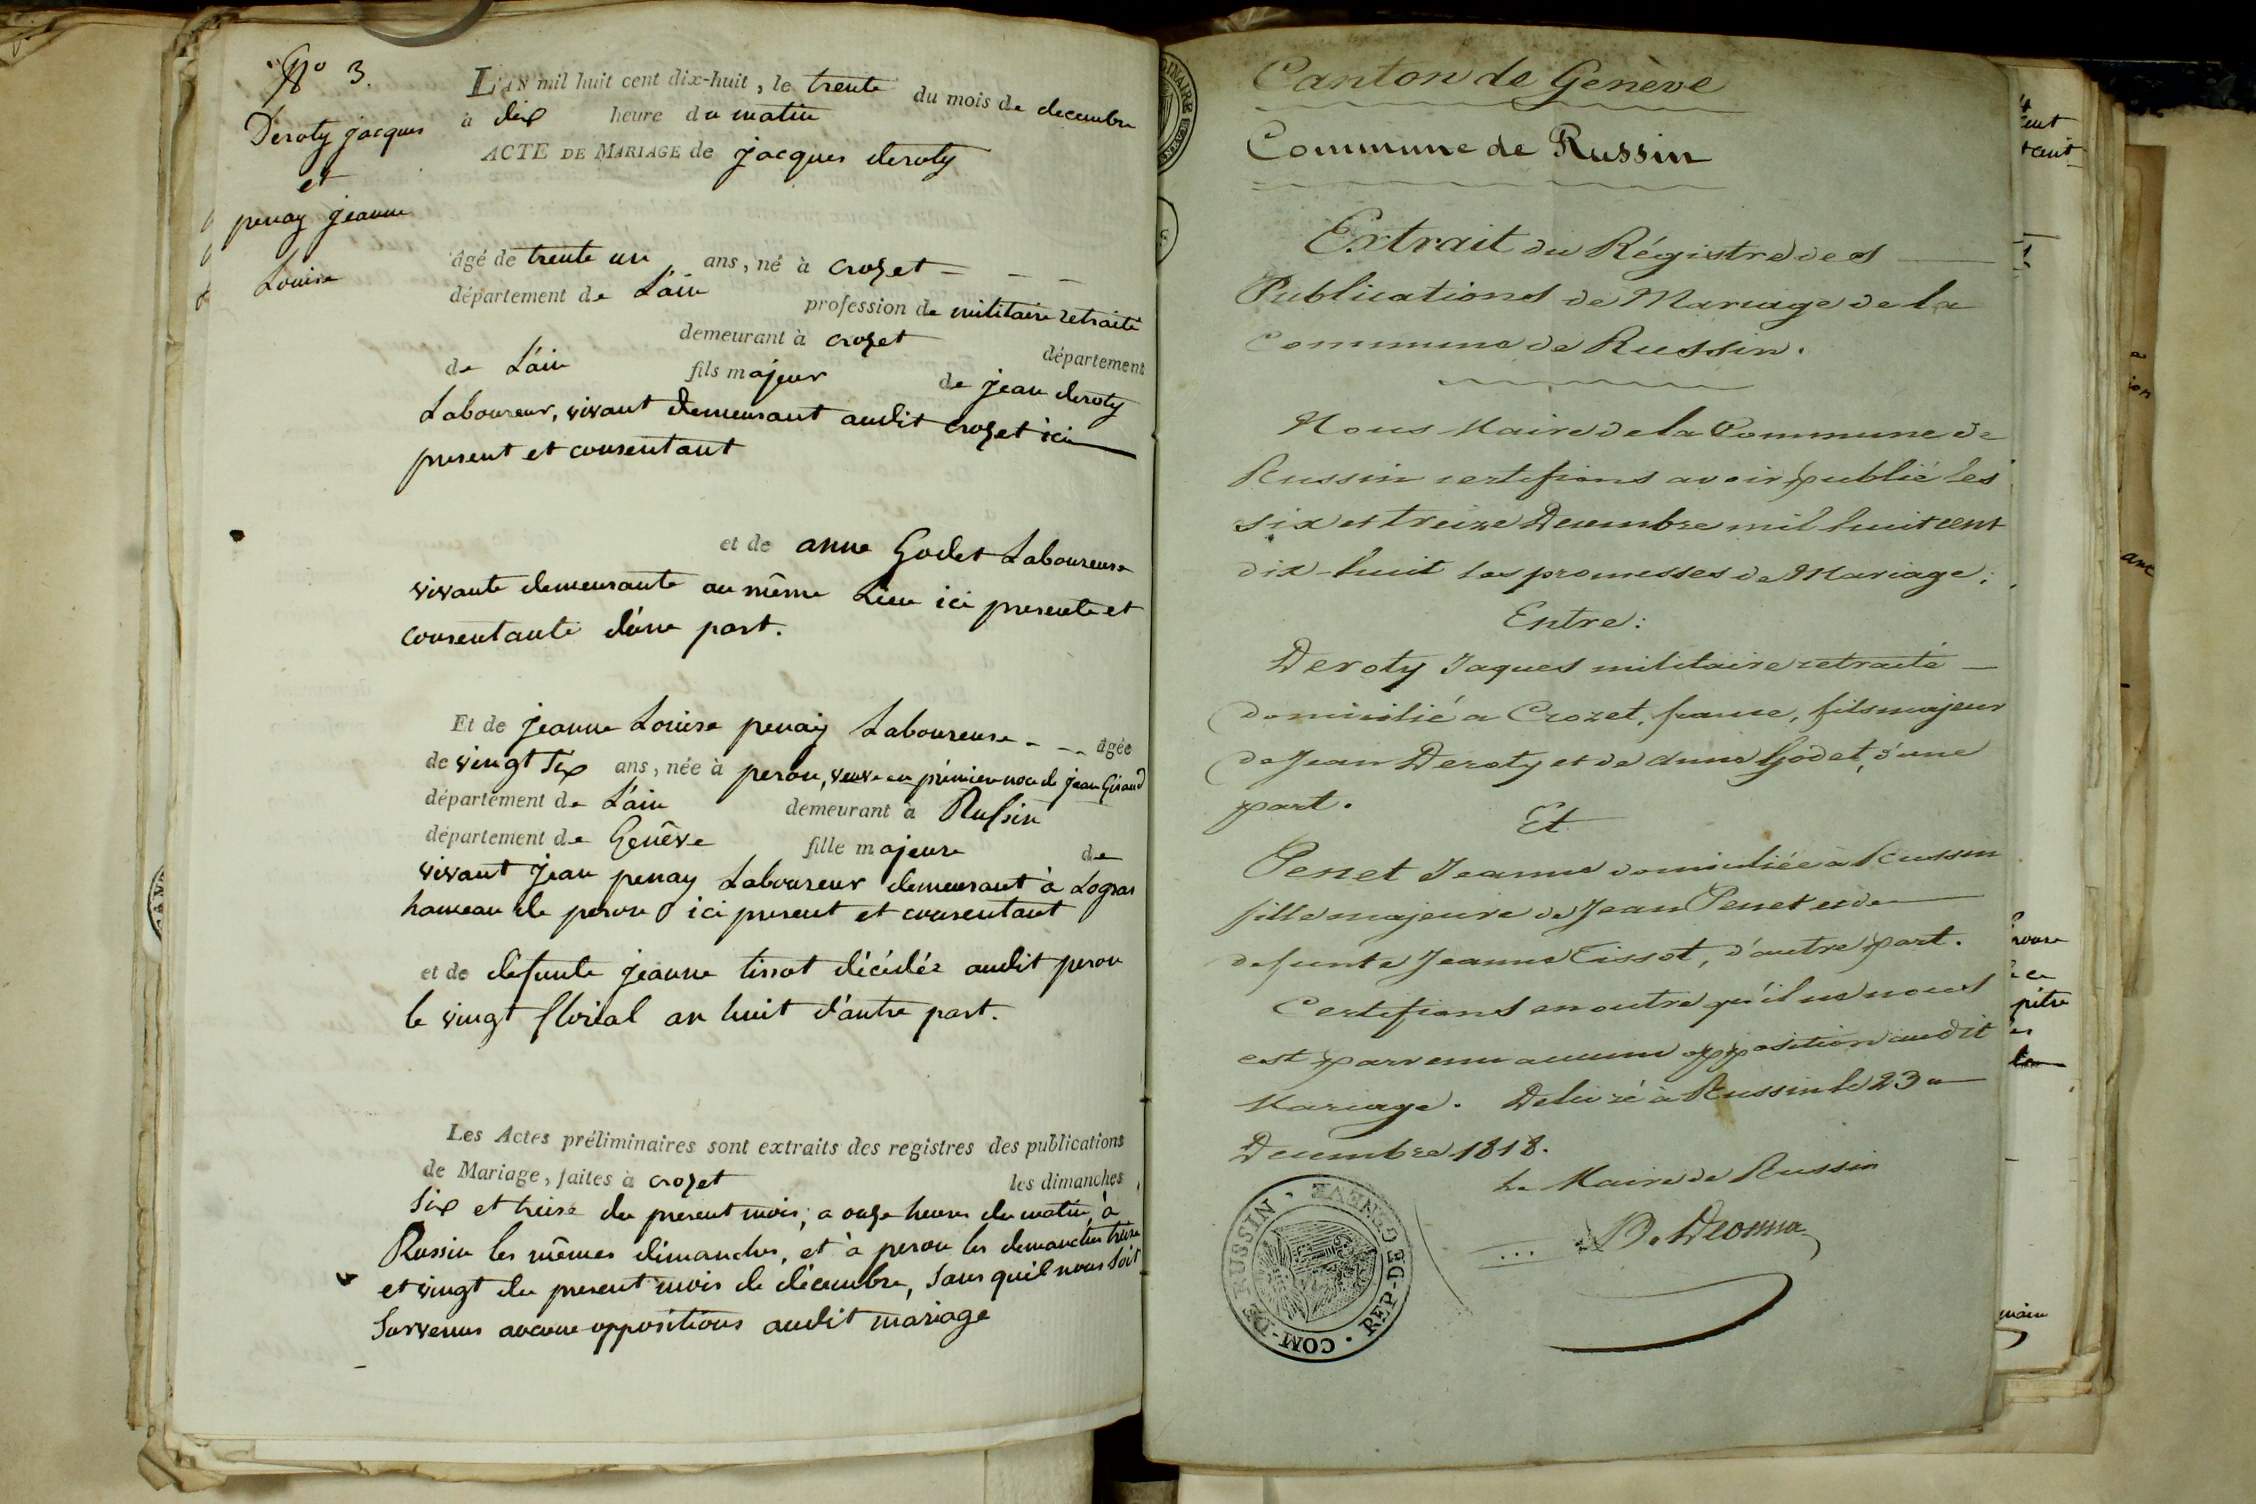 N° 3.
Deroty jacques
et
penay jeanne
Louise
L'AN mil huit cent dix-huit, le trente du mois de decembre
à dix heure du matin
ACTE DE MARIAGE de jacques deroty
âgé de trente un ans, né à crozet
département de L'ain profession de militaire retraité
demeurant à crozet département
de L'ain fils majeur de jean deroty
Laboureur, vivant demeurant audit crozet ici
present et consentant
et de anne Godet Laboureuse
vivante demeurante au même Lieu ici presente et
consentante d'une part.
Et de jeanne Louise penay Laboureuse âgée
de vingt six ans, née à peron, veuve en prémier noce de jean Giraud
département de L'ain demeurant à Russin
département de Genêve fille majeure de
vivant jean penay Laboureur demeurant à Logras
hameau de peron ici present et consentant
et de défunte jeanne tissot décédée audit peron
le vingt floréal an huit d'autre part.
Les Actes préliminaires sont extraits des registres des publications
de Mariage, faites à crozet les dimanches
six et treise du present mois, a onze heures du matin, à
Russin les mêmes dimanches, et à peron les dimanches treise
et vingt du present mois de décembre, sans quil nous soit
survenus aucune oppositions audit mariage
Canton de Genève
Commune de Russin
Extrait du Régistre des
Publications de Mariage de la
Commune de Russin.
Nous Maire de la Commune de
Russin certifions avoir publié les
six et treize Decembre mil huit cent
dix-huit les promesses de Mariage;
Entre:
Deroty Jaques militaire retraité
domicilié a Crozet, france, fils majeur
de Jean Deroty et de Anne Godet, d'une
part.
Et
Penet Jeanne domiciliée à Russin
fille majeure de Jean Penet et de
defunte Jeanne Tissot, d'autre part.
Certifions en outre qu'il ne nous
est parvenu aucune opposition audit
Mariage. Delivré à Russin le 23
Decembre 1818.
Le Maire de Russin
D. Deonna
COM-DE RUSSIN · REP-DE GENEVE